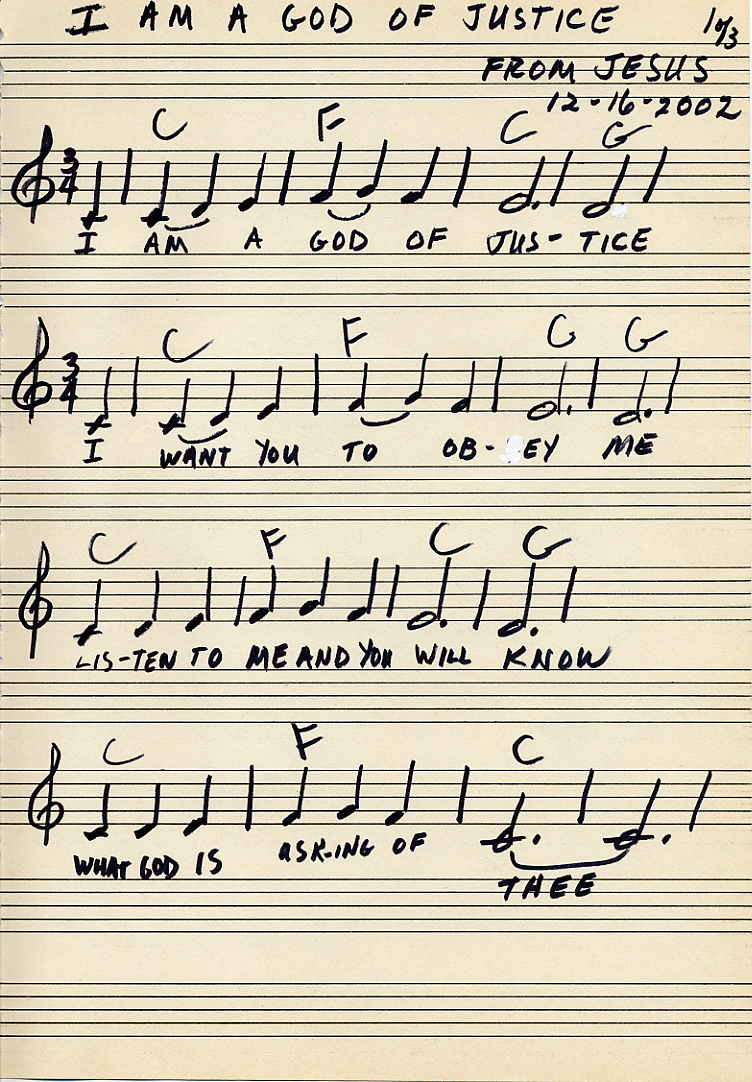 I AM A GOD OF JUSTICE 1 of 3
FROM JESUS
12-16-2002
C F C G
3/4
I AM A GOD OF JUS- TICE
C F C G
3/4
I WANT YOU TO OB- EY ME
C F C G
LIS-TEN TO ME AND YOU WILL KNOW
C F C
WHAT GOD IS ASK-ING OF
THEE